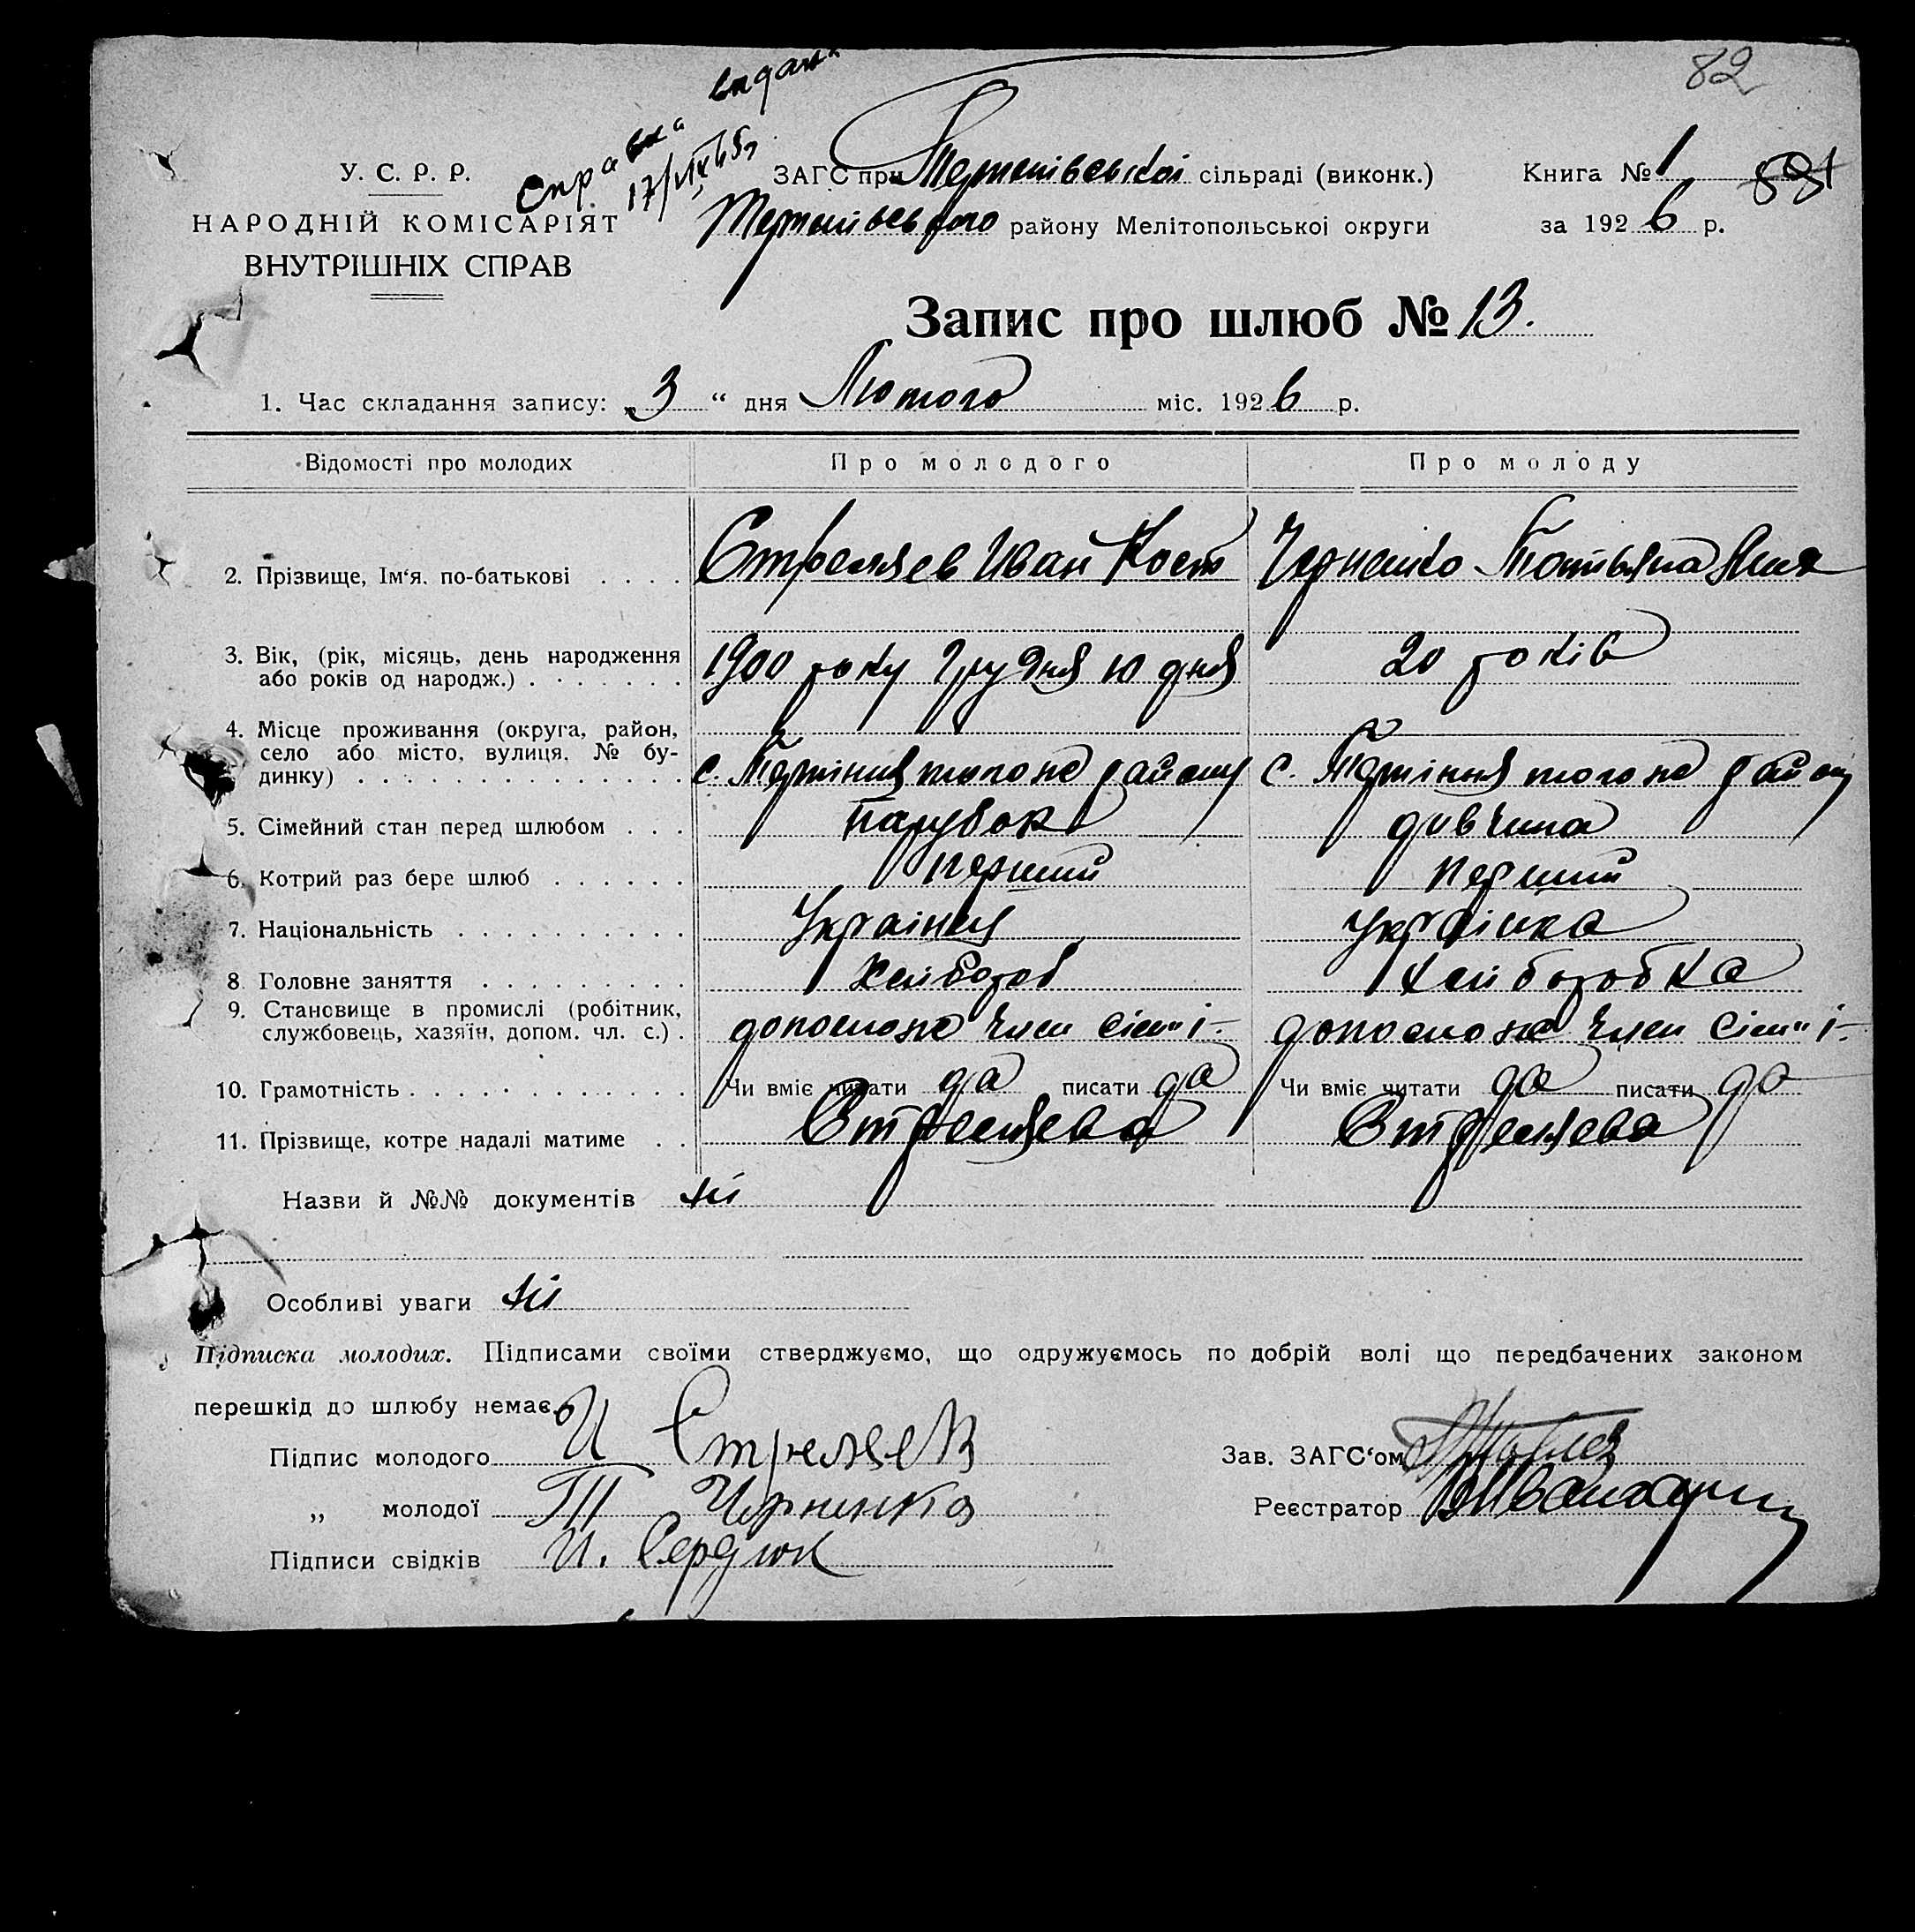 82
Справка видана
У. С. Р. Р.
НАРОДНІЙ КОМІСАРІЯТ
ВНУТРІШНІХ СПРАВ
ЗАГС при сільраді (виконк.)
району Мелітопольськоі округи
Книга № 1
за 1926 р.
Запис про шлюб № 13.
1. Час складання запису: „3“ дня Лютого міс. 1926 р.
Відомості про молодих Про молодого Про молоду
2. Прізвище, Ім‘я. по-батькові . . . . Стреляев Иван Кост Черненко Татьяна
3. Вік, (рік, місяць, день народження
або років од народж.) . . . . . . . 1900 року Грудня 10 дня 20 років
4. Місце проживання (округа, район,
село або місто, вулиця. № бу-
динку) . . . . . . . . . . . . . . с. Терпіння того же району с. Терпіння того же району
5. Сімейний стан перед шлюбом . . . парубок дивчина
6. Котрий раз бере шлюб . . . . . . перший перший
7. Національність . . . . . . . . . . Українця Українка
8 Головне заняття . . . . . . . . . Хлибороб Хлиборобка
9. Становище в промислі (робітник,
службовець, хазяїн, допом. чл. с.) . допоможе член сімьі допоможе член сімьі
10. Грамотність . . . . . . . . . . . . Чи вміє читати да писати да Чи вміє читати да писати да
11. Прізвище, котре надалі матиме . . Стреляева Стреляева
Назви й №№ документів ні
Особливі уваги ні
Підписка молодих. Підписами своїми стверджуємо, що одружуємось по добрій волі що передбачених законом
перешкід до шлюбу немає.
Підпис молодого И Стреляев
„ молодої Т Черненко
Підписи свідків И. Сердюк
Зав. ЗАГС‘ом
Реєстратор